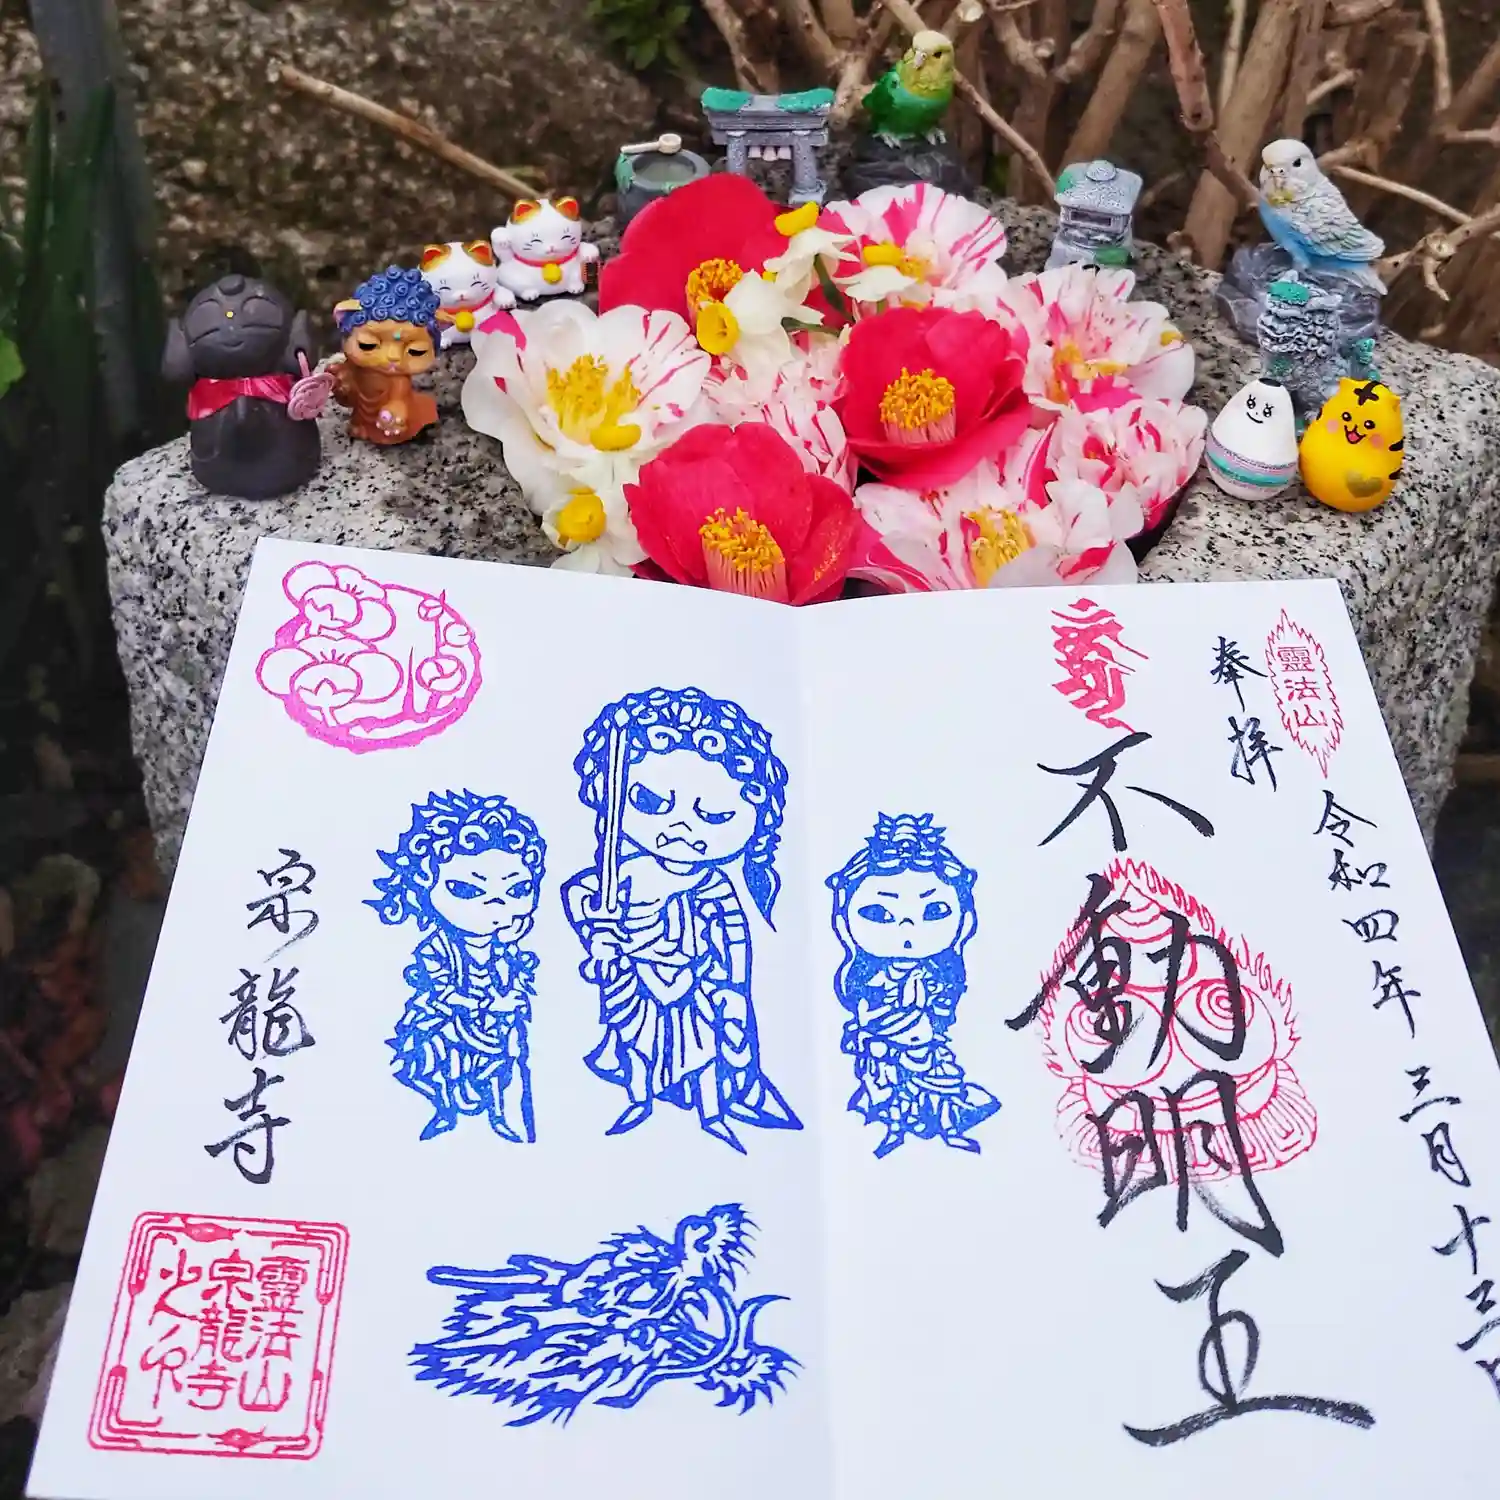 奉拝
靈法山
令和四年三月十三日
不動明王
宗龍寺
靈法山
宗龍寺
之印